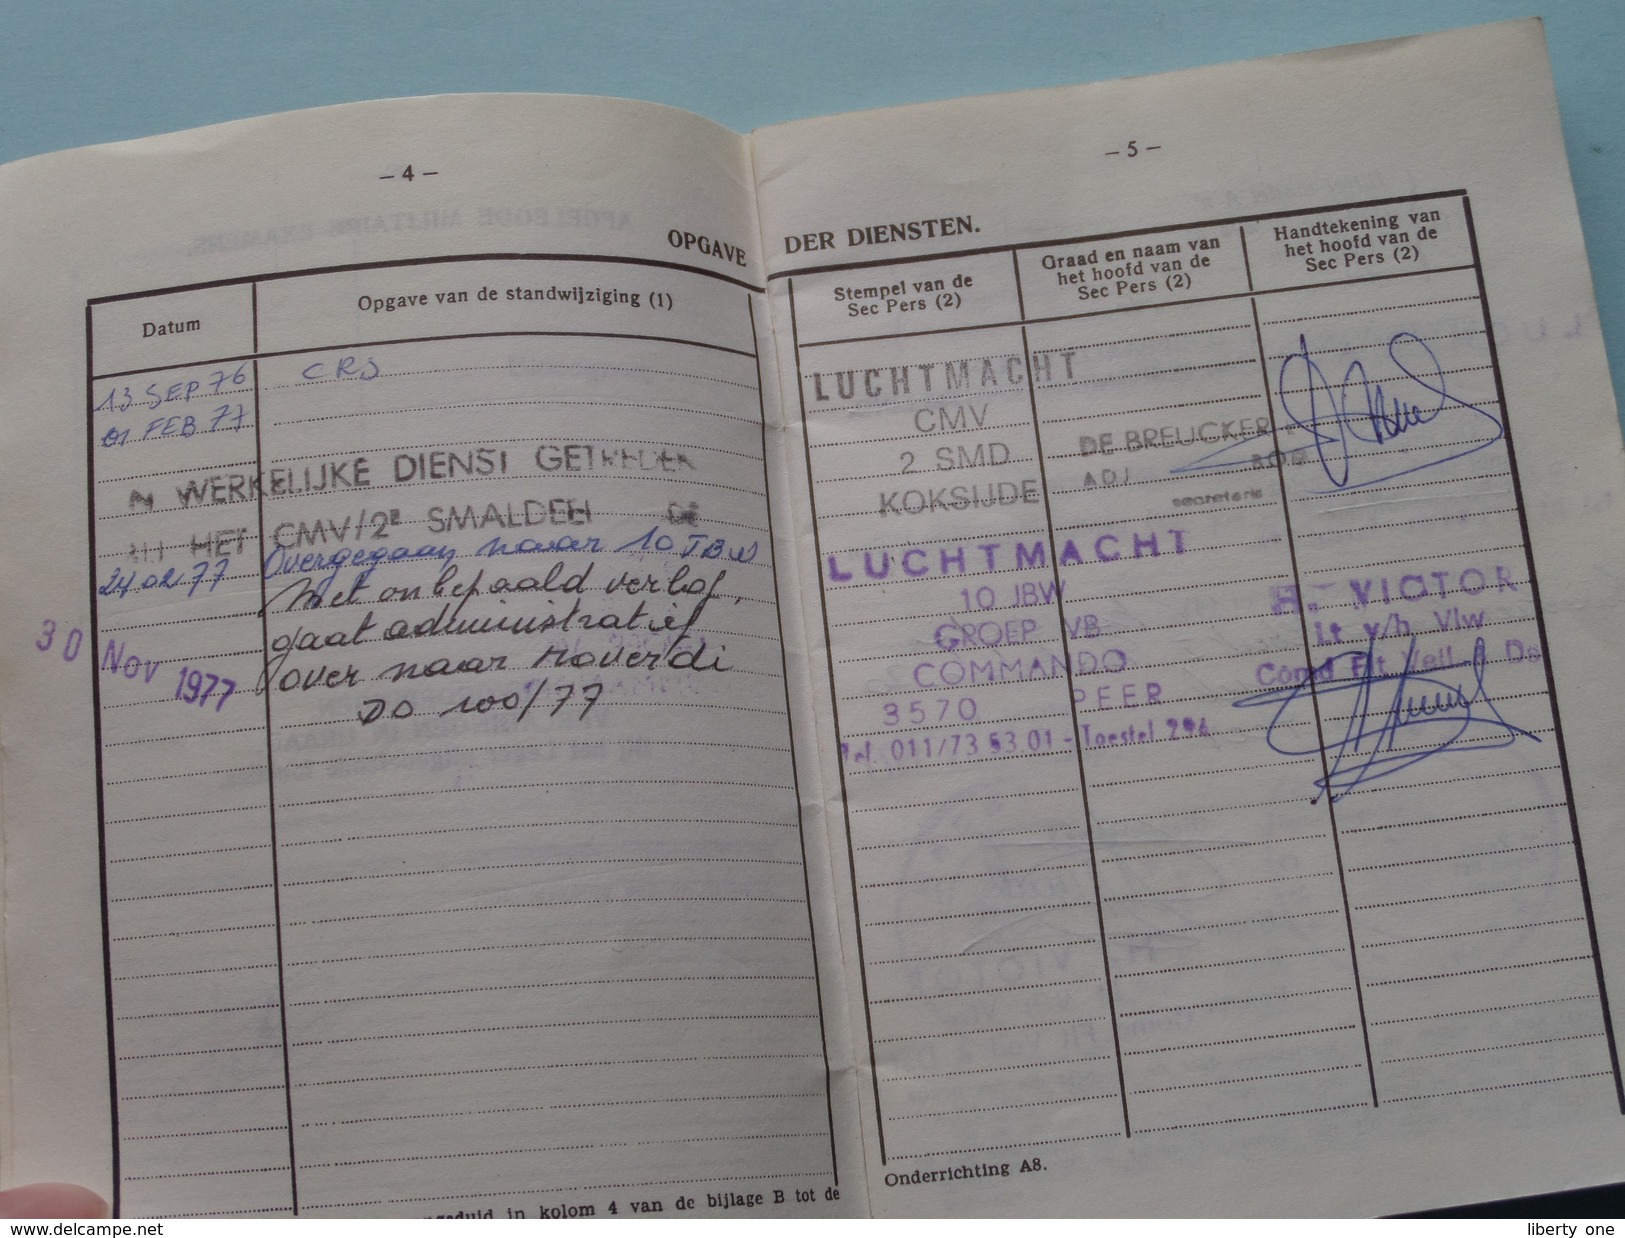 – 4 –
OPGAVE
Datum
Opgave van de standwijziging (1)
13 SEP 76
CRS
01 FEB 77
WERKELIJKE DIENST GETREDEN
HET CMV/2E SMALDEEL DE
24.02.77
Overgegaan naar 10 JBW
Met onbepaald verlof,
gaat administratief
30 NOV 1977
over naar Moverdi
DO 100/77
in kolom 4 van de bijlage B tot de
– 5 –
DER DIENSTEN.
Stempel van de
Sec Pers (2)
Graad en naam van
het hoofd van de
Sec Pers (2)
Handtekening van
het hoofd van de
Sec Pers (2)
LUCHTMACHT
CMV
2 SMD
KOKSIJDE
DE BREUCKER
ADJ
secretaris
LUCHTMACHT
10 JBW
GROEP VB
COMMANDO
3570 PEER
Tel. 011/73.53.01 - Toestel 294
H. VICTOR
Lt v/h Vlw
Comd Flt
Onderrichting A8.
www.delcampe.net
liberty one